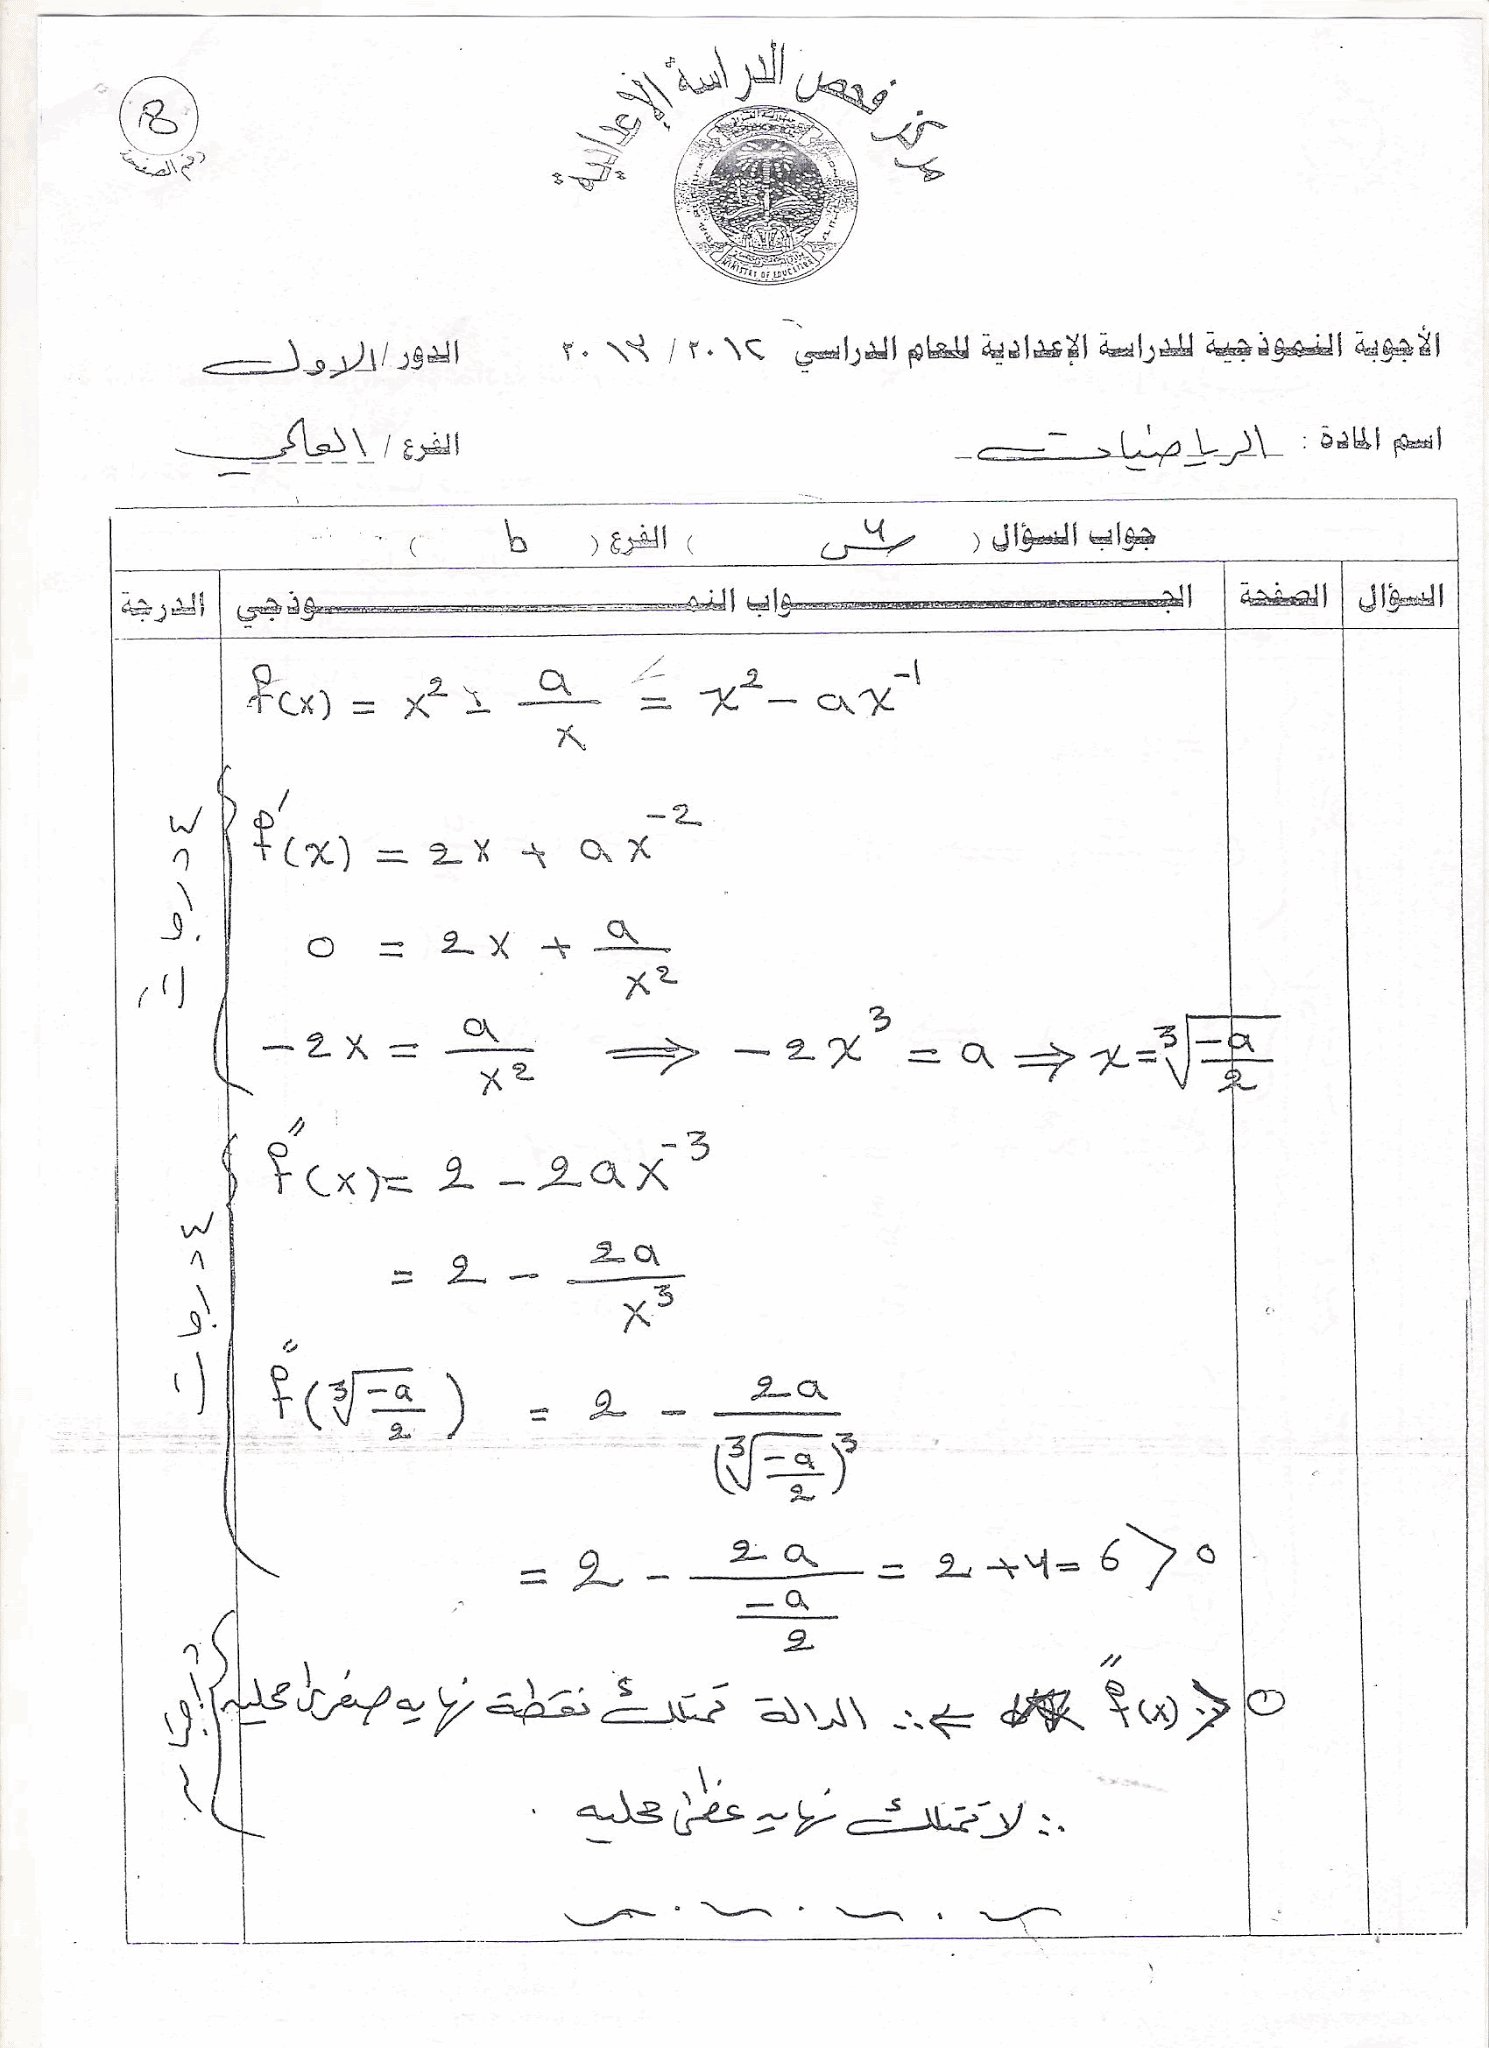 مركز فحص الدراسة الإعدادية
رقم الصفحة
MINISTRY OF EDUCATION
الأجوبة النموذجية للدراسة الإعدادية للعام الدراسي ٢٠١٢ / ٢٠١٣ الدور / الاول
اسم المادة : الرياضيات الفرع / العلمي
جواب السؤال ( س ) الفرع ( b )
السؤال الصفحة الجـــواب النمـــوذجي الدرجة
f(x) = x² - a/x = x² - ax⁻¹
f'(x) = 2x + ax⁻²
٤ درجات
0 = 2x + a/x²
-2x = a/x² ⟹ -2x³ = a ⟹ x = ∛(-a/2)
f''(x) = 2 - 2ax⁻³
٤ درجات
= 2 - 2a/x³
f''(∛(-a/2)) = 2 - 2a/(∛(-a/2))³
= 2 - 2a/(-a/2) = 2 + 4 = 6 > 0
f''(x) > 0 ⟸ ∴ الدالة تمتلك نقطة نهاية صغرى محلية
∴ لا تمتلك نهاية عظمى محلية .